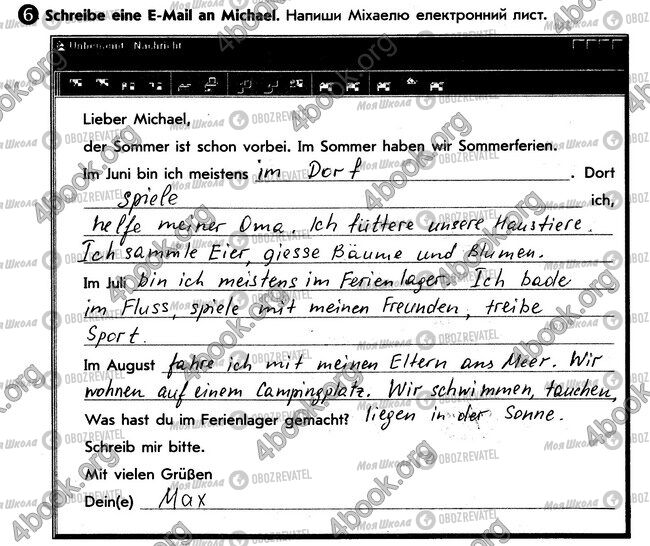 6 Schreibe eine E-Mail an Michael. Напиши Міхаелю електронний лист.
Unbenannt - Nachricht
Lieber Michael,
der Sommer ist schon vorbei. Im Sommer haben wir Sommerferien.
Im Juni bin ich meistens im Dorf. Dort
spiele ich,
helfe meiner Oma. Ich füttere unsere Haustiere.
Ich sammle Eier, giesse Bäume und Blumen.
Im Juli bin ich meistens im Ferienlager. Ich bade
im Fluss, spiele mit meinen Freunden, treibe
Sport.
Im August fahre ich mit meinen Eltern ans Meer. Wir
wohnen auf einem Campingplatz. Wir schwimmen, tauchen,
Was hast du im Ferienlager gemacht? liegen in der Sonne.
Schreib mir bitte.
Mit vielen Grüßen
Dein(e) Max
4book.org
Моя Школа OBOZREVATEL